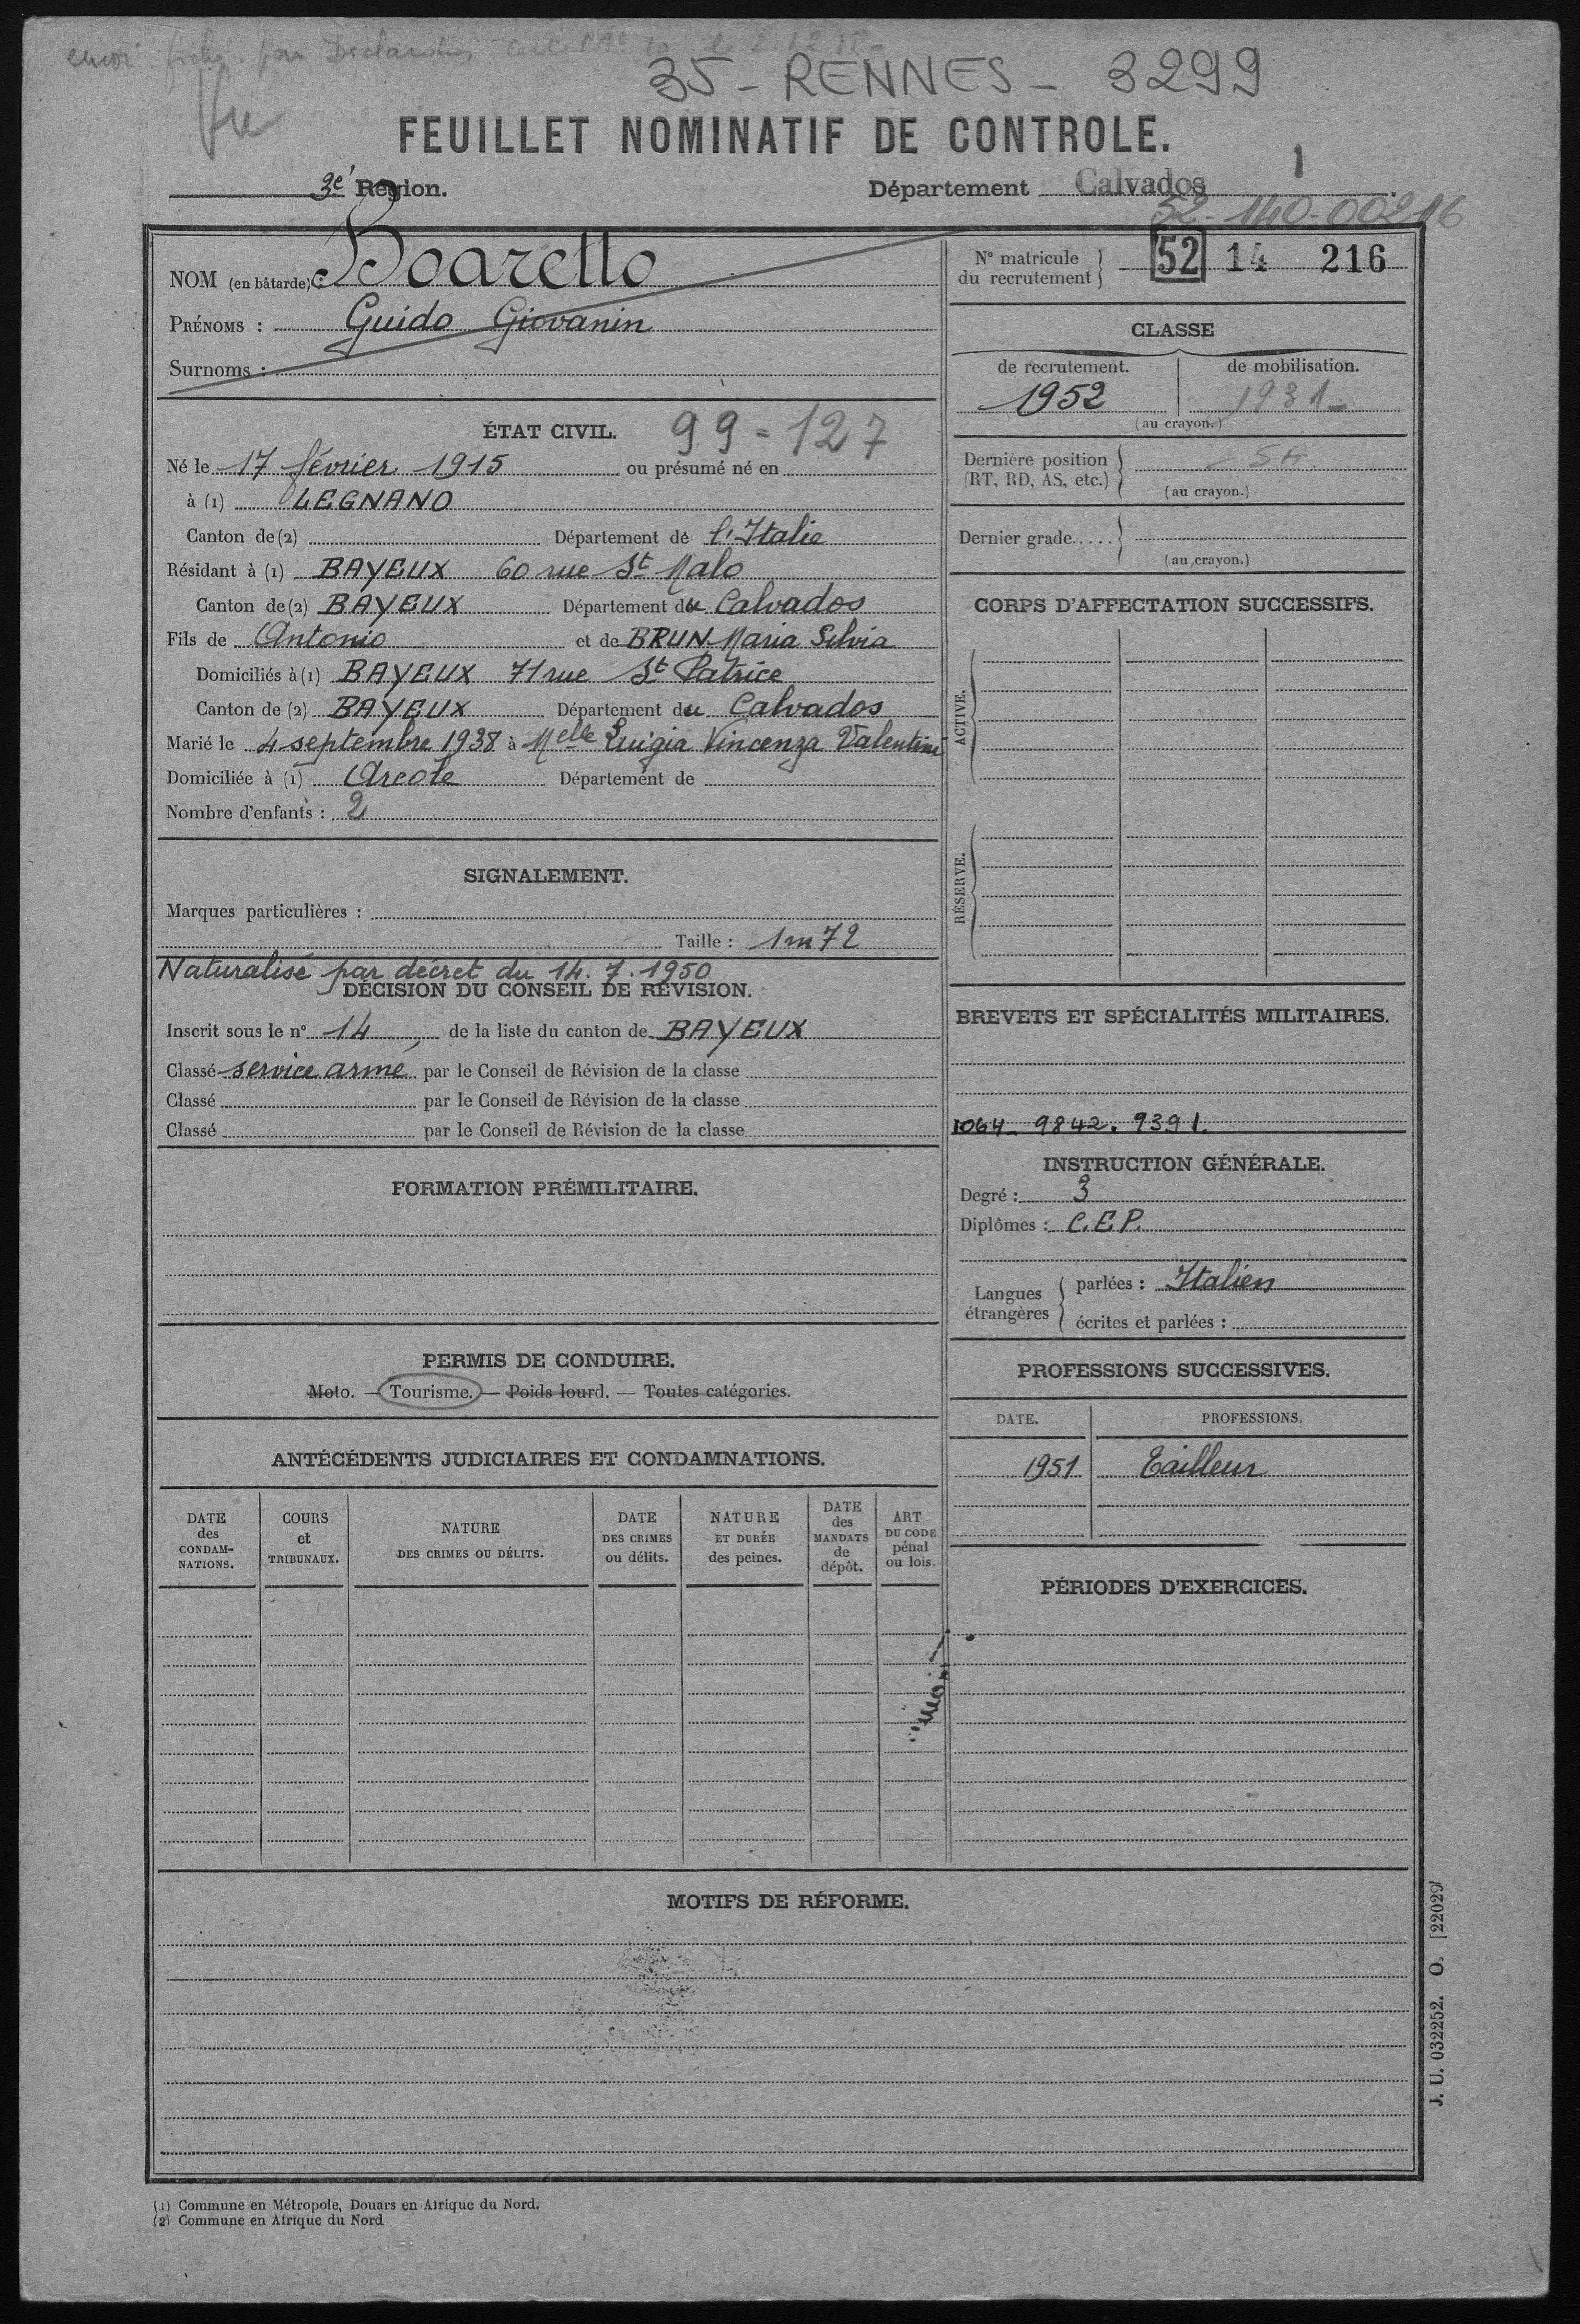 35 - RENNES - 3299
Vu
FEUILLET NOMINATIF DE CONTROLE.
3e Région. Département Calvados 1
52-140-00216
NOM (en bâtarde) : Boaretto
PRÉNOMS : Guido Giovanin
Surnoms :
N° matricule du recrutement 52 14 216
CLASSE
de recrutement. de mobilisation.
1952 1931
(au crayon.)
Dernière position (RT, RD, AS, etc.) SA
(au crayon.)
Dernier grade.....
(au crayon.)
ÉTAT CIVIL. 99-127
Né le 17 février 1915 ou présumé né en
à (1) LEGNANO
Canton de (2) Département de l'Italie
Résidant à (1) BAYEUX 60 rue St Malo
Canton de (2) BAYEUX Département du Calvados
Fils de Antonio et de BRUN Maria Silvia
Domiciliés à (1) BAYEUX 71 rue St Patrice
Canton de (2) BAYEUX Département du Calvados
Marié le 4 septembre 1938 à Melle Luigia Vincenza Valentini
Domiciliée à (1) Arcole Département de
Nombre d'enfants : 2
SIGNALEMENT.
Marques particulières :
Taille : 1m72
Naturalisé par décret du 14.7.1950
DÉCISION DU CONSEIL DE RÉVISION.
Inscrit sous le n° 14 de la liste du canton de BAYEUX
Classé service armé par le Conseil de Révision de la classe
Classé par le Conseil de Révision de la classe
Classé par le Conseil de Révision de la classe
FORMATION PRÉMILITAIRE.
PERMIS DE CONDUIRE.
Moto. — Tourisme. — Poids lourd. — Toutes catégories.
ANTÉCÉDENTS JUDICIAIRES ET CONDAMNATIONS.
DATE des CONDAMNATIONS.
COURS et TRIBUNAUX.
NATURE DES CRIMES OU DÉLITS.
DATE DES CRIMES ou délits.
NATURE ET DURÉE des peines.
DATE des MANDATS de dépôt.
ART DU CODE pénal ou lois.
CORPS D'AFFECTATION SUCCESSIFS.
ACTIVE.
RÉSERVE.
BREVETS ET SPÉCIALITÉS MILITAIRES.
1064 - 9842. 9391.
INSTRUCTION GÉNÉRALE.
Degré : 3
Diplômes : C.E.P.
Langues étrangères
parlées : Italien
écrites et parlées :
PROFESSIONS SUCCESSIVES.
DATE. PROFESSIONS.
1951 Tailleur
PÉRIODES D'EXERCICES.
MOTIFS DE RÉFORME.
J. U. 032252. O. [22029]
(1) Commune en Métropole, Douars en Afrique du Nord.
(2) Commune en Afrique du Nord